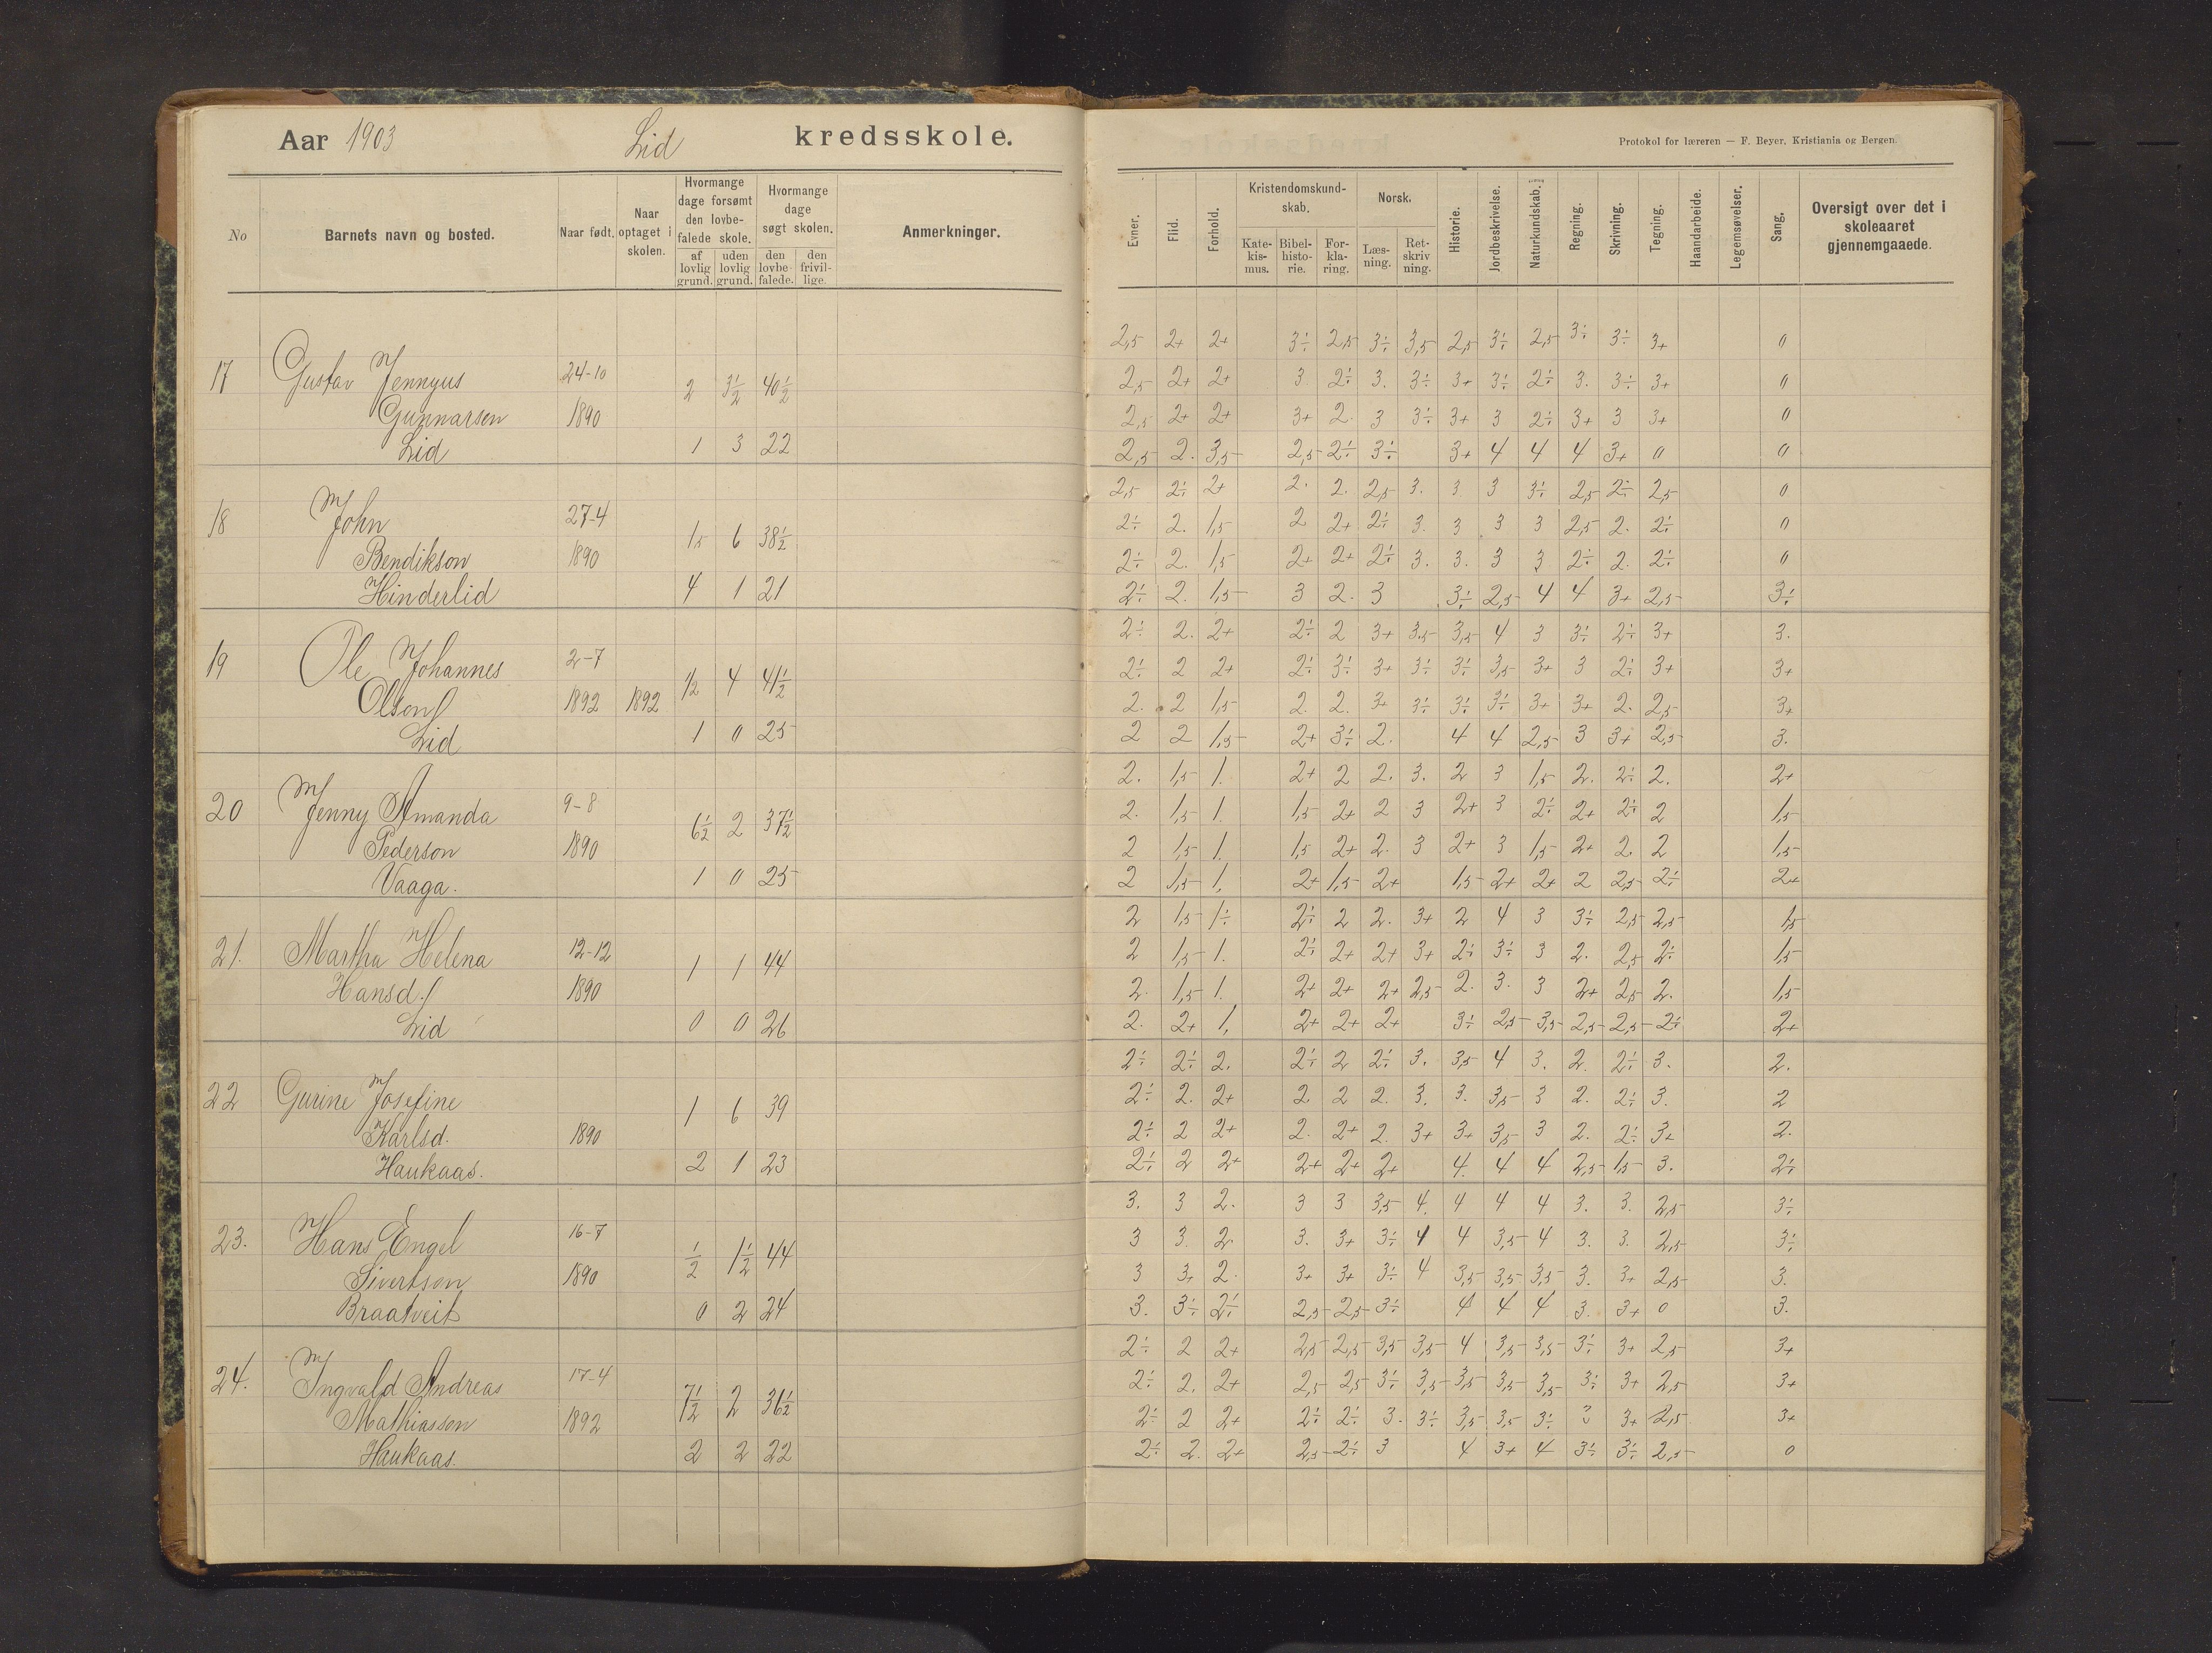 Aar 1903 Lid kredsskole.
No
Barnets navn og bosted.
Naar født.
Naar optaget i skolen.
Hvormange dage forsømt den lovbefalede skole.
af lovlig grund.
uden lovlig grund.
Hvormange dage søgt skolen.
den lovbefalede.
den frivillige.
Anmerkninger.
17 Gustav Jennyus 24-10 2 3½ 40½
Gunnarsen 1890
Lid 1 3 22
18 John 27-4 1,5 6 38½
Bendikson 1890
Hinderlid 4 1 21
19 Ole Johannes 2-7 ½ 4 41½
Olson 1892 1892
Lid 1 0 25
20 Jenny Amanda 9-8 6½ 2 37½
Pederson 1890
Vaaga. 1 0 25
21. Martha Helena 12-12 1 1 44
Hansd. 1890
Lid 0 0 26
22 Gurine Josefine 1 6 39
Karlsd. 1890
Haukaas. 2 1 23
23. Hans Engel 16-7 ½ 1½ 44
Sivertson 1890
Braatveit 0 2 24
24. Ingvald Andreas 17-4 7½ 2 36½
Mathiasson 1892
Haukaas. 2 2 22
Protokol for læreren — F. Beyer, Kristiania og Bergen.
Evner.
Flid.
Forhold.
Kristendomskundskab.
Katekismus.
Bibelhistorie.
Forklaring.
Norsk.
Læsning.
Retskrivning.
Historie.
Jordbeskrivelse.
Naturkundskab.
Regning.
Skrivning.
Tegning.
Haandarbeide.
Legemsøvelser.
Sang.
Oversigt over det i skoleaaret gjennemgaaede.
2,5 2+ 2+ 3÷ 2,5 3÷ 3,5 2,5 3÷ 2,5 3÷ 3÷ 3+ 0
2,5 2+ 2+ 3 2÷ 3. 3÷ 3+ 3÷ 2÷ 3. 3÷ 3+ 0
2,5 2+ 2+ 3+ 2. 3 3÷ 3+ 3 2÷ 3+ 3 3+ 0
2,5 2. 3,5 2,5 2÷ 3÷ 3+ 4 4 4 3+ 0 0
2,5 2÷ 2+ 2. 2. 2,5 3. 3 3 3÷ 2,5 2÷ 2,5 0
2÷ 2. 1,5 2 2+ 2÷ 3. 3 3 3 2,5 2. 2÷ 0
2÷ 2. 1,5 2+ 2+ 2÷ 3. 3. 3 3 2÷ 2. 2÷ 0
2÷ 2. 1,5 3 2. 3 3÷ 2,5 4 4 3+ 2,5 3÷
2÷ 2. 2+ 2÷ 2 3+ 3,5 3,5 4 3 3÷ 2÷ 3+ 3.
2÷ 2 2+ 2÷ 3÷ 3+ 3÷ 3÷ 3,5 3+ 3 2÷ 3+ 3+
2. 2 1,5 2. 2. 3+ 3÷ 3÷ 3÷ 3+ 3+ 2. 2,5 3+
2 2 1,5 2+ 3÷ 2. 4 4 2,5 3 3+ 2,5 3.
2. 1,5 1. 2+ 2 2. 3. 2 3 1,5 2. 2÷ 2. 2+
2. 1,5 1. 1,5 2+ 2 3 2+ 3 2÷ 2+ 2÷ 2 1,5
2 1,5 1. 1,5 2+ 2. 3 2+ 3 1,5 2+ 2. 2 1,5
2 1,5 1. 2+ 1,5 2+ 1,5 2+ 2+ 2 2,5 2÷ 2+
2 1,5 1÷ 2÷ 2 2. 3+ 2 4 3 3÷ 2,5 2,5 1,5
2 1,5 1. 2÷ 2+ 2+ 3+ 2÷ 3÷ 3 2. 2,5 2÷ 1,5
2. 1,5 1. 2+ 2+ 2+ 2,5 2. 3. 3 2+ 2,5 2. 1,5
2. 2+ 1, 2+ 2+ 2+ 3÷ 2,5 3,5 2,5 2,5 2÷ 2+
2÷ 2÷ 2. 2÷ 2 2÷ 3. 3,5 4 3. 2. 2÷ 3. 2.
2÷ 2. 2+ 2. 2 2. 3. 3. 3,5 3 2. 2÷ 3. 2
2÷ 2 2+ 2. 2+ 2. 3+ 3+ 3,5 3 2. 2÷ 3+ 2.
2÷ 2 2+ 2+ 2+ 2+ 4. 4 4 2,5 1,5 3. 2÷
3. 3 2. 3 3 3,5 4. 4 4 4 3. 3. 2,5 3÷
3 3. 2 3. 3+ 3÷ 4 4 3,5 4 3. 3. 2,5 3÷
3 3+ 2. 3+ 3+ 3÷ 4 3,5 3,5 3,5 3. 3+ 2,5 3.
3. 3÷ 2÷ 2,5 2,5 3÷ 4 4 4 3. 3+ 0 3.
2÷ 2 2+ 2,5 2,5 3,5 3,5 4 3,5 3,5 3÷ 3+ 2,5 3+
2÷ 2. 2+ 2,5 2,5 3÷ 3,5 3,5 3,5 3,5 3÷ 3+ 2,5 3+
2÷ 2 2+ 2÷ 2÷ 3. 3÷ 3,5 3,5 3÷ 3 3+ 2,5 3+
2÷ 2. 2+ 2,5 2÷ 3 4 3+ 4 3÷ 3÷ 2,5 0